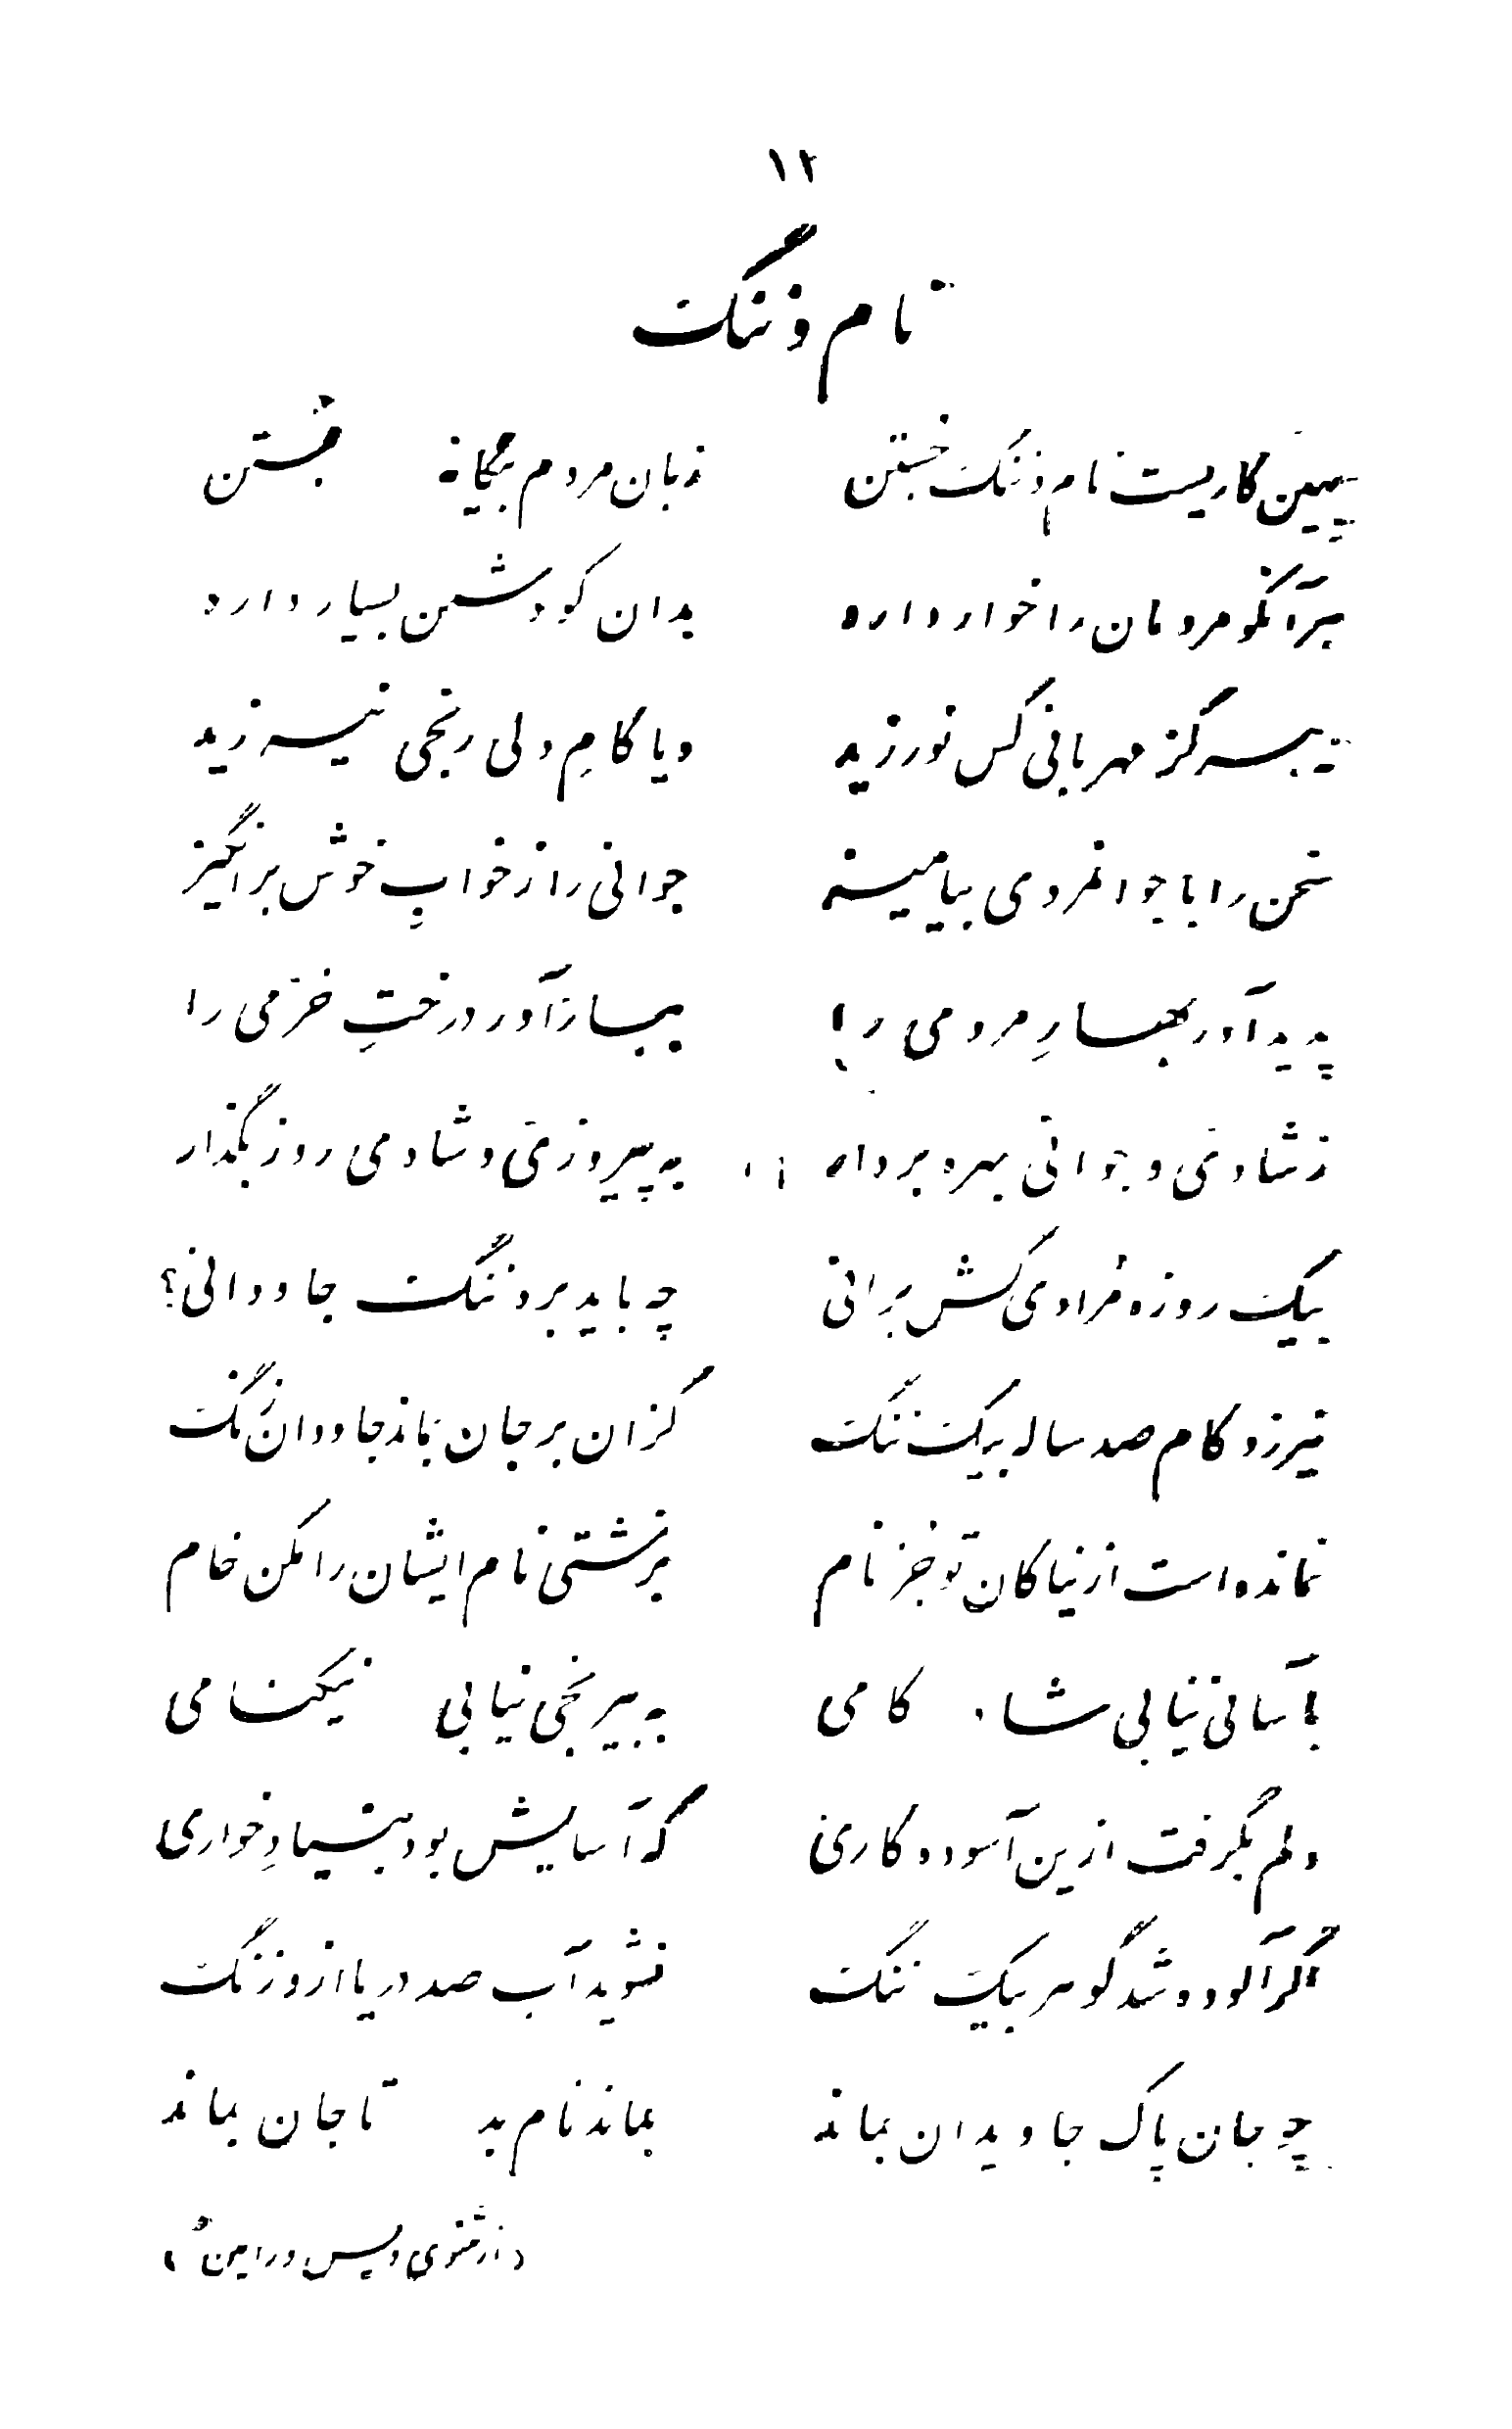 ۱۲
نام و ننگ
مهین کاریست نام و ننگ جستن زبان مردم بیگانه بستن
هرآنگو مردمان را خوار دارد بدان کو دشمن بسیار دارد
به هرگز مهربانی کس نورزید و یا کامِ دلی رنجی نیرزید
سخن را با جوانمردی بیامیز جوانی را از خوابِ خوش برانگیز
پدید آور بهارِ مردمی را ببار آور درختِ خرّمی را
ز شادیّ و جوانی بهره بردار به پیروزیّ و شادی روز بگذار
بیک روزه مُرادی کش برانی چه باید برد ننگ جاودانی؟
نیرزد کام صد ساله بیک ننگ کزان بر جان بماند جاودان زنگ
نمانده است از نیاکان تو جز نام بزشتی نام ایشان را مکن خام
بآسانی نیابی شاد کامی به بیرنجی نیابی نیکنامی
دلم بگرفت ازین آسوده کاری که آسایش بود بنیادِ خواری
گر آلوده شد گوهر بیک ننگ نشوید آب صد دریا ازو زنگ
چو جان پاک جاویدان بماند بماند نام بد تا جان بماند
«از مثنوی ویس و رامین»